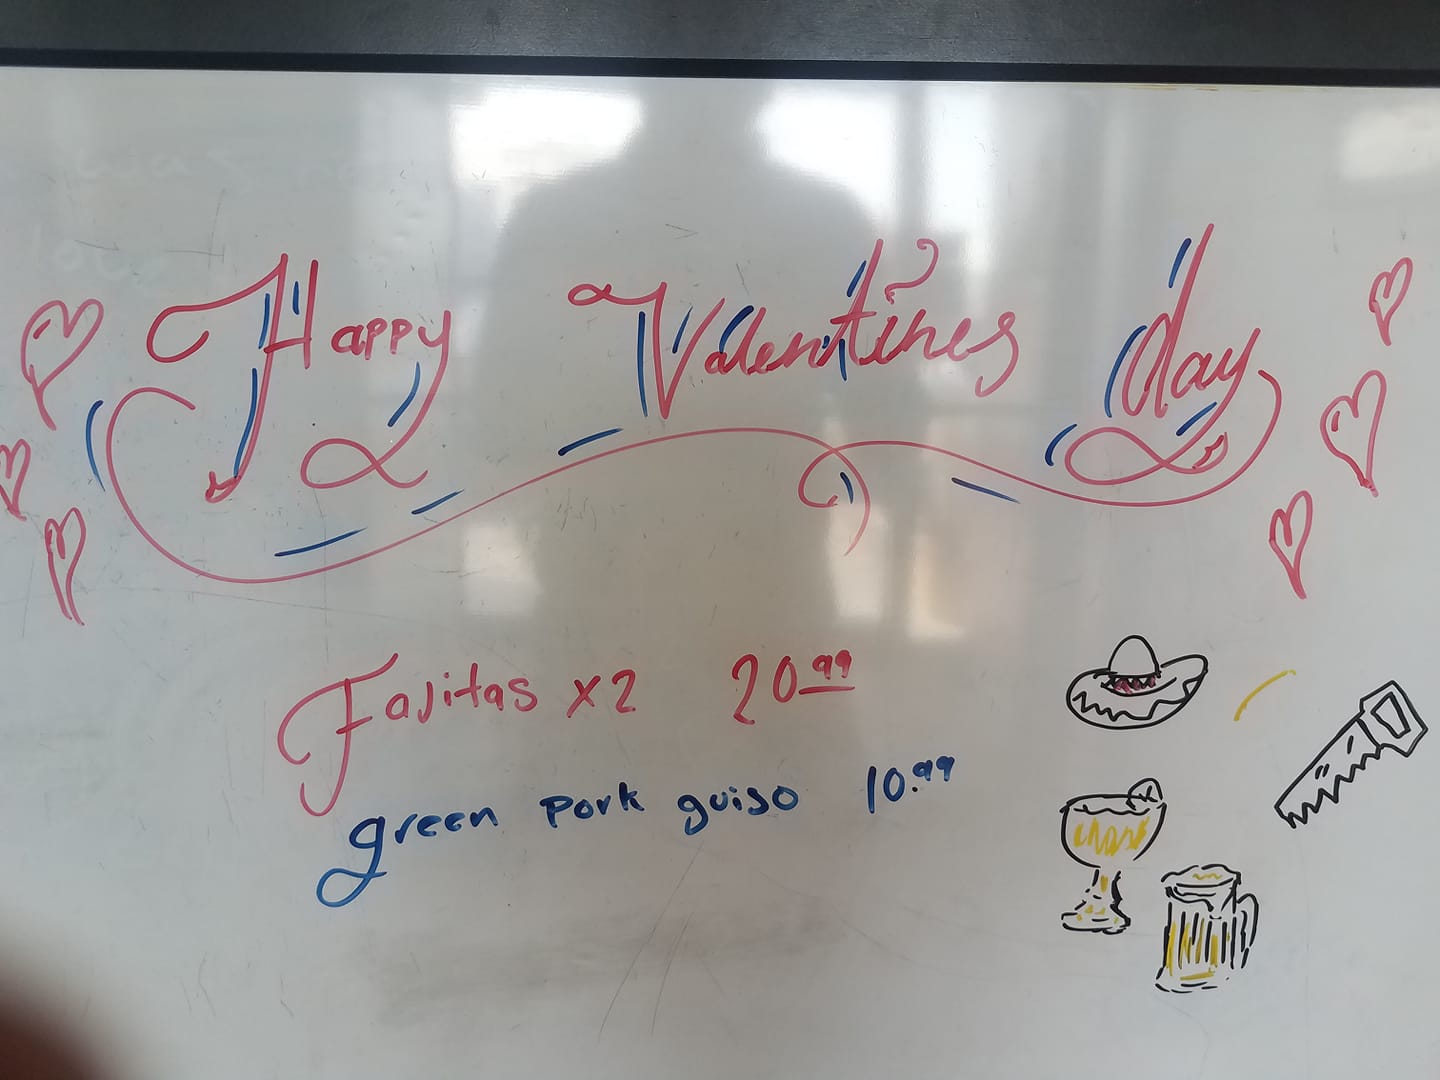 Happy Valentines day
Fajitas x2 20.99
green pork guiso 10.99